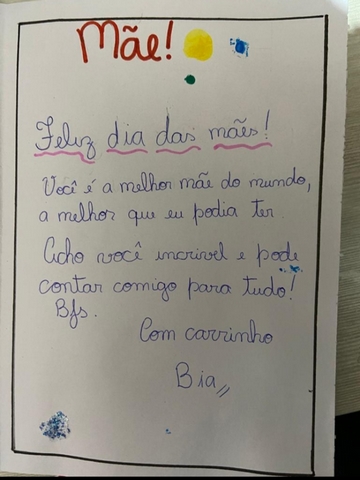 Mãe!
Feliz dia das mães!
Você é a melhor mãe do mundo,
a melhor que eu podia ter
Acho você incrivel e pode
contar comigo para tudo!
Bjs.
Com carrinho
Bia